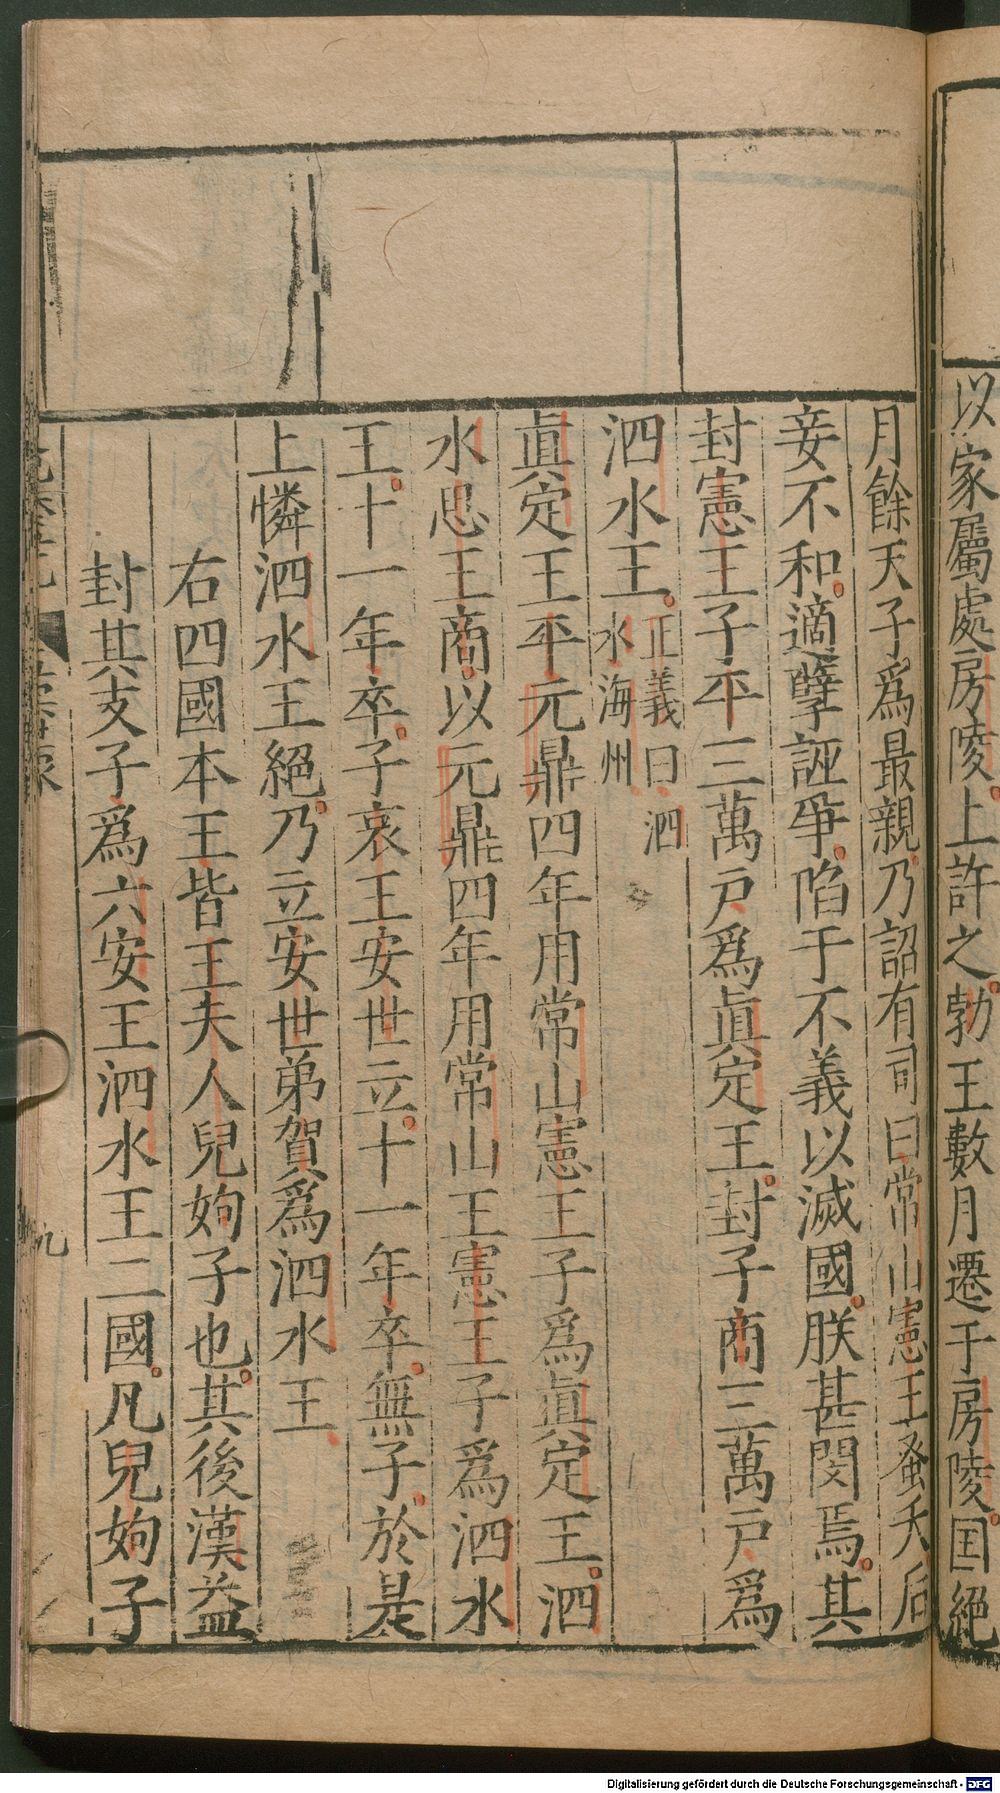 以家屬處房陵上許之勃王數月遷于房陵国絕
月餘天子爲最親乃詔有司曰常山憲王蚤夭后
妾不和適孽誣爭陷于不義以滅國朕甚閔焉其
封憲王子平三萬戸爲眞定王封子商三萬戸爲
泗水王正義曰泗
水海州
眞定王平元鼎四年用常山憲王子爲眞定王泗
水思王商以元鼎四年用常山王憲王子爲泗水
王十一年卒子哀王安世立十一年卒無子於是
上憐泗水王絕乃立安世弟賀爲泗水王
右四國本王皆王夫人兒姁子也其後漢益
封其支子爲六安王泗水王二國凡兒姁子
九
Digitalisierung gefördert durch die Deutsche Forschungsgemeinschaft - DFG